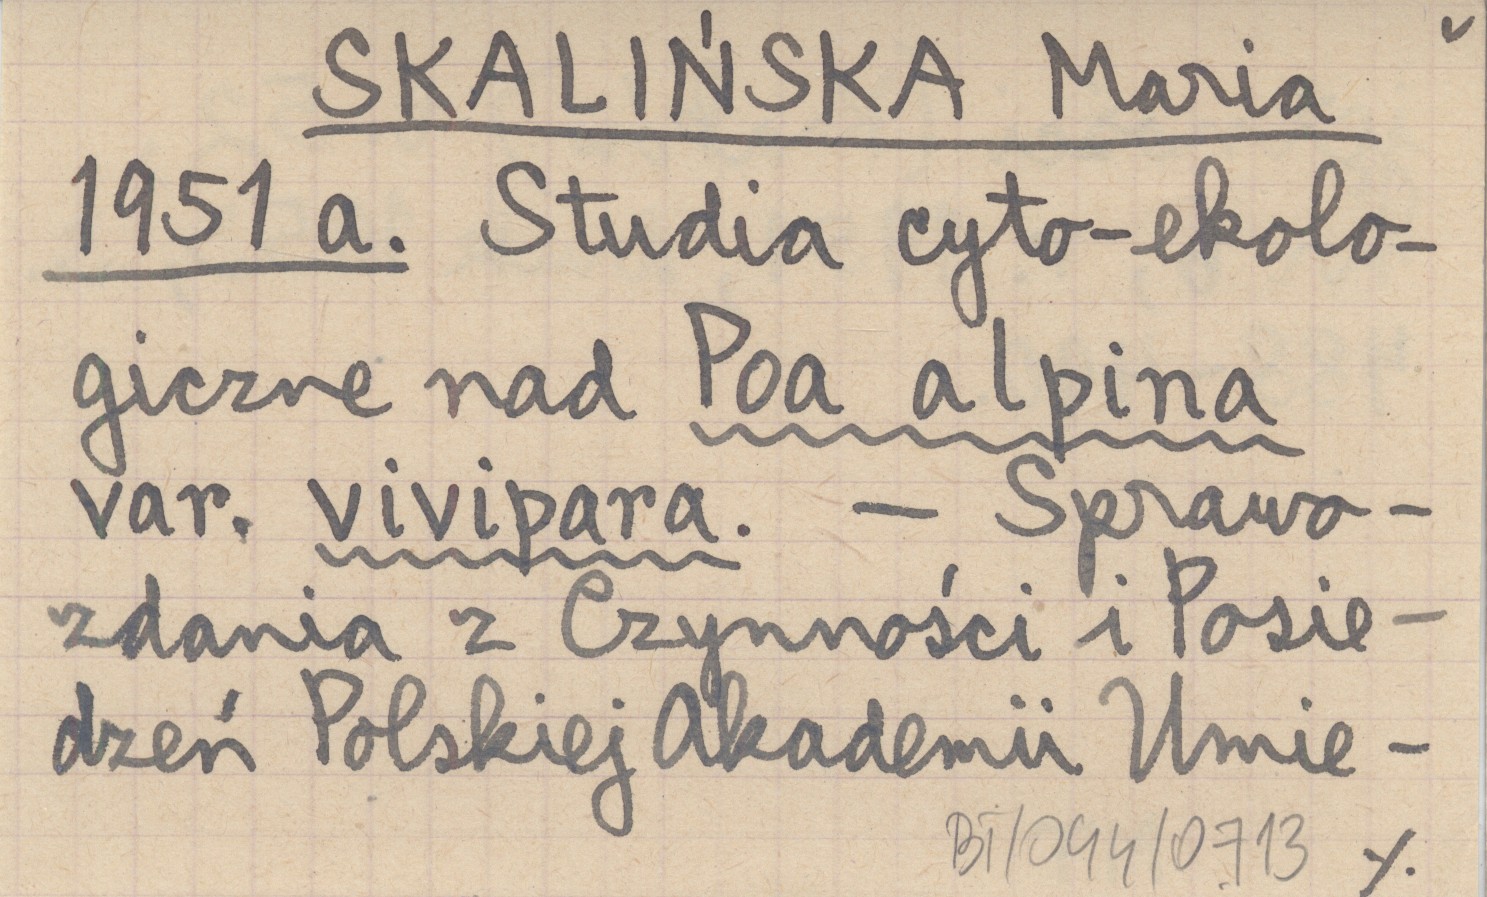 SKALIŃSKA Maria
1951 a. Studia cyto-ekolo-
giczne nad Poa alpina
var. vivipara. — Sprawo-
zdania z Czynności i Posie-
dzeń Polskiej Akademii Umie-
BT/044/0713 ·/.